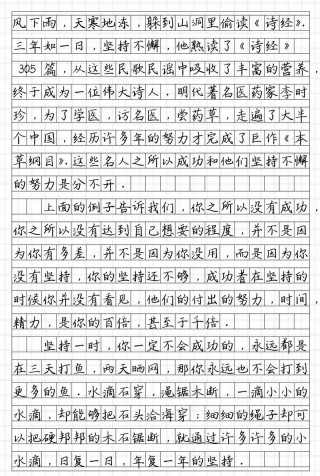 风下雨，天寒地冻，躲到山洞里偷读《诗经》.
三年如一日，坚持不懈，他熟读了《诗经》
305 篇，从这些民歌民谣中吸收了丰富的营养，
终于成为一位伟大诗人．明代著名医药家李时
珍，为了学医，访名医，尝药草，走遍了大半
个中国，经历许多年的努力才完成了巨作《本
草纲目》.这些名人之所以成功和他们坚持不懈
的努力是分不开．
上面的例子告诉我们，你之所以没有成功，
你之所以没有达到自己想要的程度，并不是因
为你有多差，并不是因为你没用，而是因为你
没有坚持，你的坚持还不够，成功者在坚持的
时候你并没有看见，他们的付出的努力，时间，
精力，是你的百倍，甚至于千倍．
坚持一时，你一定不会成功的，永远都是
在三天打鱼，两天晒网，那你永远也不会打到
更多的鱼．水滴石穿，绳锯木断，一滴小小的
水滴，却能够把石头洽海穿；细细的绳子却可
以把硬邦邦的木石锯断，就通过许多许多的小
水滴，日复一日，年复一年的坚持．